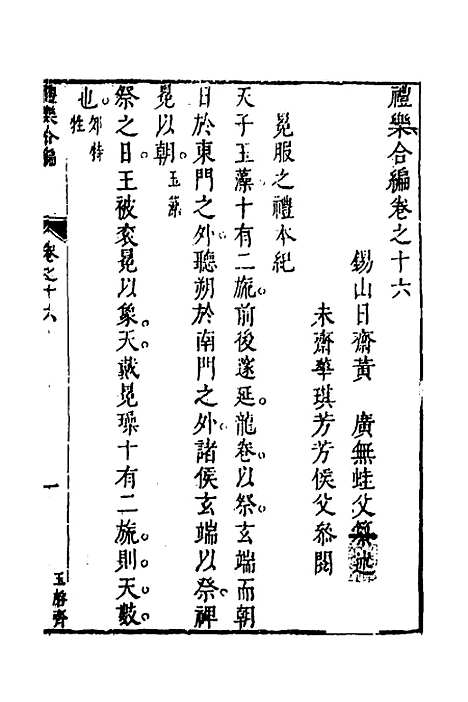 禮樂合編卷之十六
錫山日齋黃　廣無蛙父纂述
未齋華琪芳芳侯父叅閱
冕服之禮本紀
天子玉藻十有二旒前後邃延龍卷以祭玄端而朝
日於東門之外聽朔於南門之外諸侯玄端以祭裨
冕以朝玉藻
祭之日王被衮冕以象天戴冕璪十有二旒則天數
也郊特
牲
禮樂合編
卷之十六
一
玉磬齊